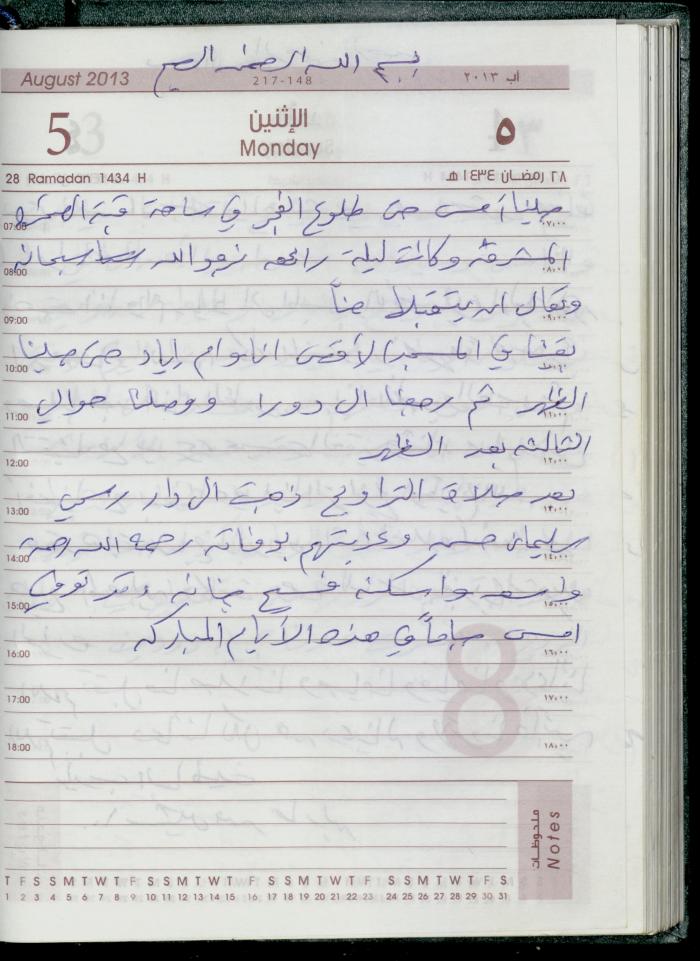 بسم الله الرحمن الرحيم
August 2013 217-148 آب ٢٠١٣
5 الإثنين ٥
Monday
28 Ramadan 1434 H ٢٨ رمضان ١٤٣٤ هـ
صلينا أمس حتى طلوع الفجر في ساحة قبة الصخرة
07:00 ٠٧:٠٠
المشرفة وكانت ليلة رائعة نرجو الله سبحانه
08:00 ٠٨:٠٠
وتعالى ان يتقبلا منا
09:00 ٠٩:٠٠
بقينا في المسجد الأقصى انا وام اياد حتى صلينا
10:00 ١٠:٠٠
الظهر ثم رجعنا الى دورا ووصلنا حوالي
11:00 ١١:٠٠
الثالثة بعد الظهر
12:00 ١٢:٠٠
بعد صلاة التراويح ذهبت الى دار رسمي
13:00 ١٣:٠٠
سليمان حسن وعزيتهم بوفاته رحمه الله رحمة
14:00 ١٤:٠٠
واسعة واسكنه فسيح جنانه وقد توفي
15:00 ١٥:٠٠
امس في هذه الأيام المباركة
16:00 ١٦:٠٠
17:00 ١٧:٠٠
18:00 ١٨:٠٠
ملحوظات
Notes
T F S S M T W T F S S M T W T F S S M T W T F S S M T W T F S
1 2 3 4 5 6 7 8 9 10 11 12 13 14 15 16 17 18 19 20 21 22 23 24 25 26 27 28 29 30 31